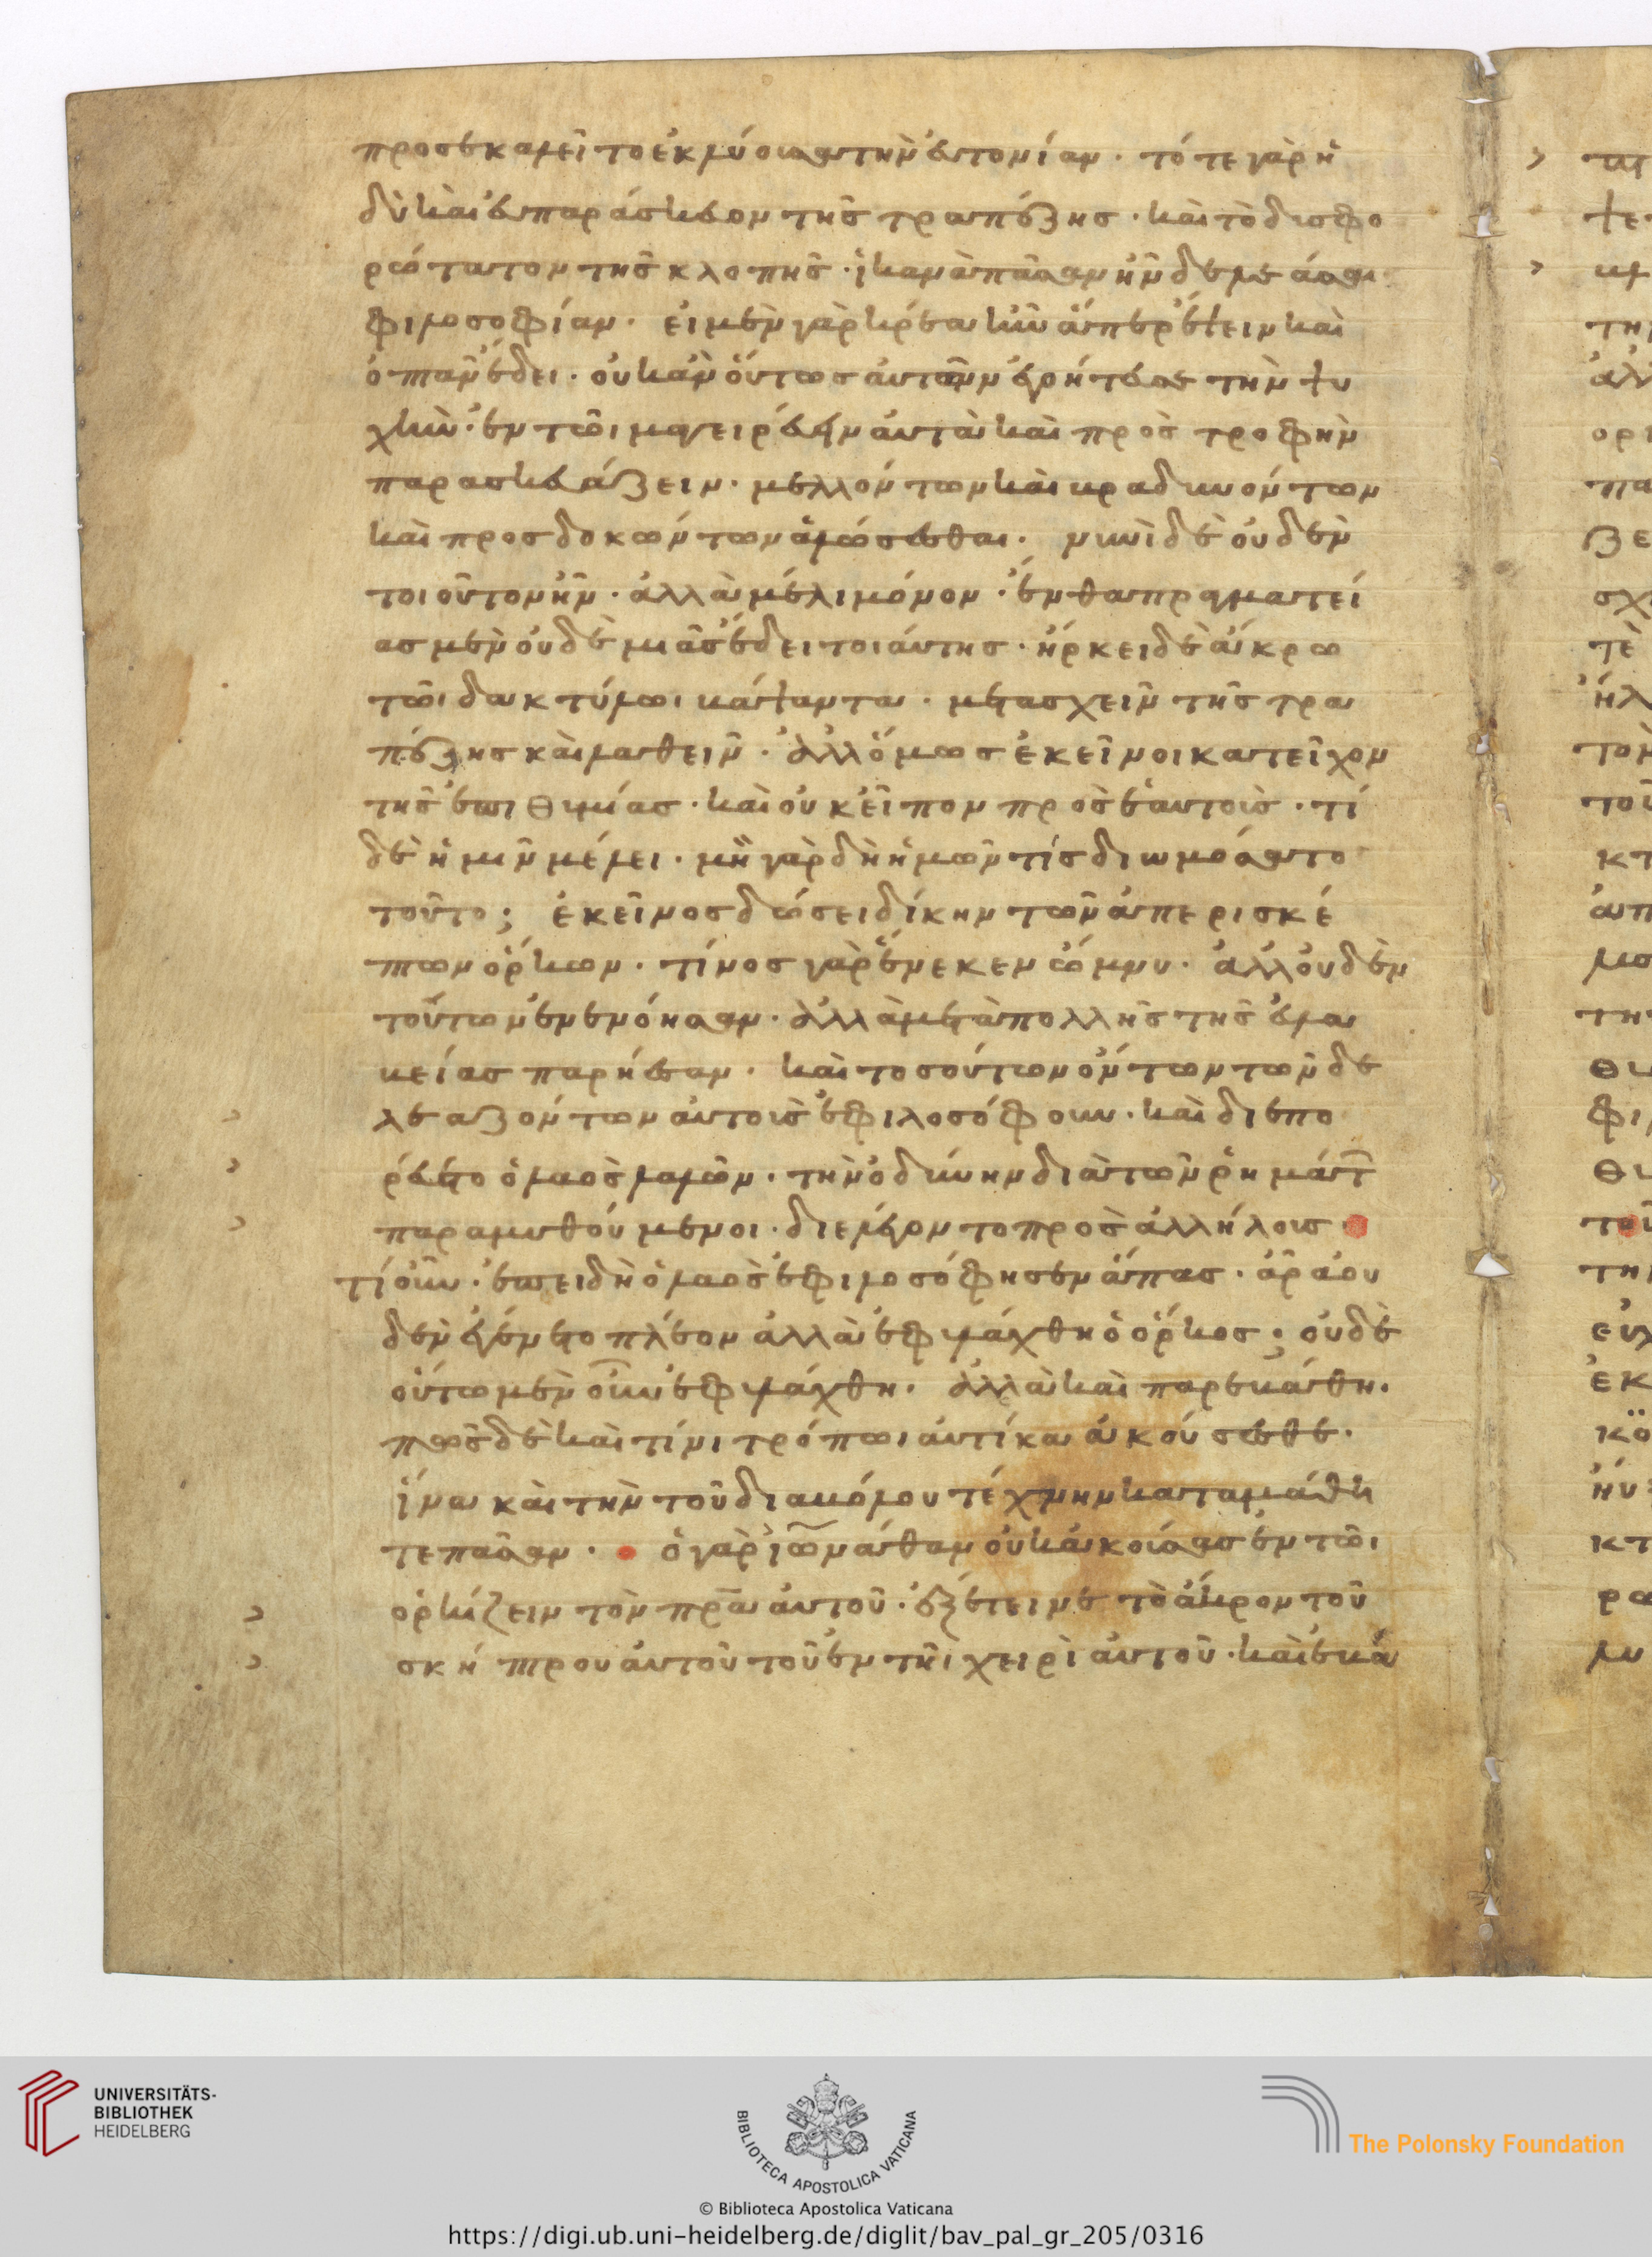 προσεκαλεῖτο ἐκλύουσα τὴν εὐτονίαν · τό τε γὰρ ἡ
δὺ καὶ εὐπαράσκευον τῆς τραπέζης · καὶ τὸ δυσφο
ρώτατον τῆς κλοπῆς · ἱκανὰ πᾶσαν ἦν δελεάσαι
φιλοσοφίαν · εἰ μὲν γὰρ κρέα ἦν ἅπερ ἕψειν καὶ
ὀπτᾶν ἔδει · οὐκ ἂν οὕτως αὐτῶν ἐγοήτευσε τὴν ψυ
χὴν · ἐν τῶι μαγειρεύειν αὐτὰ καὶ πρὸς τροφὴν
παρασκευάζειν · μελλόντων καὶ βραδυνόντων
καὶ προσδοκώντων ἁλώσεσθαι · νυνὶ δὲ οὐδὲν
τοιοῦτον ἦν · ἀλλὰ μέλι μόνον · ἔνθα πραγματεί
ας μὲν οὐδὲ μιᾶς ἔδει τοιαύτης · ἤρκει δὲ ἄκρω
τῶι δακτύλωι βάψαντα · μετασχεῖν τῆς τρα
πέζης καὶ λαθεῖν · ἀλλ' ὅμως ἐκεῖνοι κατεῖχον
τῆς ἐπιθυμίας · καὶ οὐκ εἶπον πρὸς ἑαυτοὺς · τί
δὲ ἡμῖν μέλει · μὴ γὰρ δὴ ἡμῶν τίς διωμόσατο
τοῦτο ; ἐκεῖνος δώσει δίκην τῶν ἀπερισκέ
πτων ὅρκων · τίνος γὰρ ἕνεκεν ὤμνυ · ἀλλ' οὐδὲν
τούτων ἐνενόησαν · ἀλλὰ μετὰ πολλῆς τῆς εὐλα
βείας παρήεσαν · καὶ τοσούτων ὄντων τῶν δε
λεαζόντων αὐτοὺς ἐφιλοσόφουν · καὶ διεπο
ρεύετο ὁ λαὸς λαλῶν · τὴν ὀδύνην διὰ τῶν ῥημάτ
παραμυθούμενοι · διελέγοντο πρὸς ἀλλήλους
τί οὖν · ἐπειδὴ ὁ λαὸς ἐφιλοσόφησεν ἅπας · ἆρα οὐ
δὲν ἐγένετο πλέον ἀλλὰ ἐφυλάχθη ὁ ὅρκος ; οὐδὲ
οὕτω μὲν οὖν ἐφυλάχθη · ἀλλὰ καὶ παρεβάθη ·
πῶς δὲ καὶ τίνι τρόπωι αὐτίκα ἀκούσεσθε ·
ἵνα καὶ τὴν τοῦ διαβόλου τέχνην καταμάθη
τε πᾶσαν · ὁ γὰρ ἰωνάθαν οὐκ ἀκούσας ἐν τῶι
ὁρκίζειν τὸν πρα αὐτοῦ · ἐξέτεινε τὸ ἄκρον τοῦ
σκήπτρου αὐτοῦ τοῦ ἐν τῆι χειρὶ αὐτοῦ · καὶ ἔβα
UNIVERSITÄTS-
BIBLIOTHEK
HEIDELBERG
BIBLIOTECA APOSTOLICA VATICANA
The Polonsky Foundation
© Biblioteca Apostolica Vaticana
https://digi.ub.uni-heidelberg.de/diglit/bav_pal_gr_205/0316